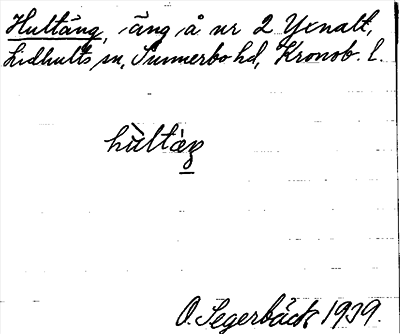 Hultäng, äng å nr 2 Yxnalt,
Lidhults sn, Sunnerbo hd, Kronob. l.
hùltàŋ
O. Segerbäck 1939.